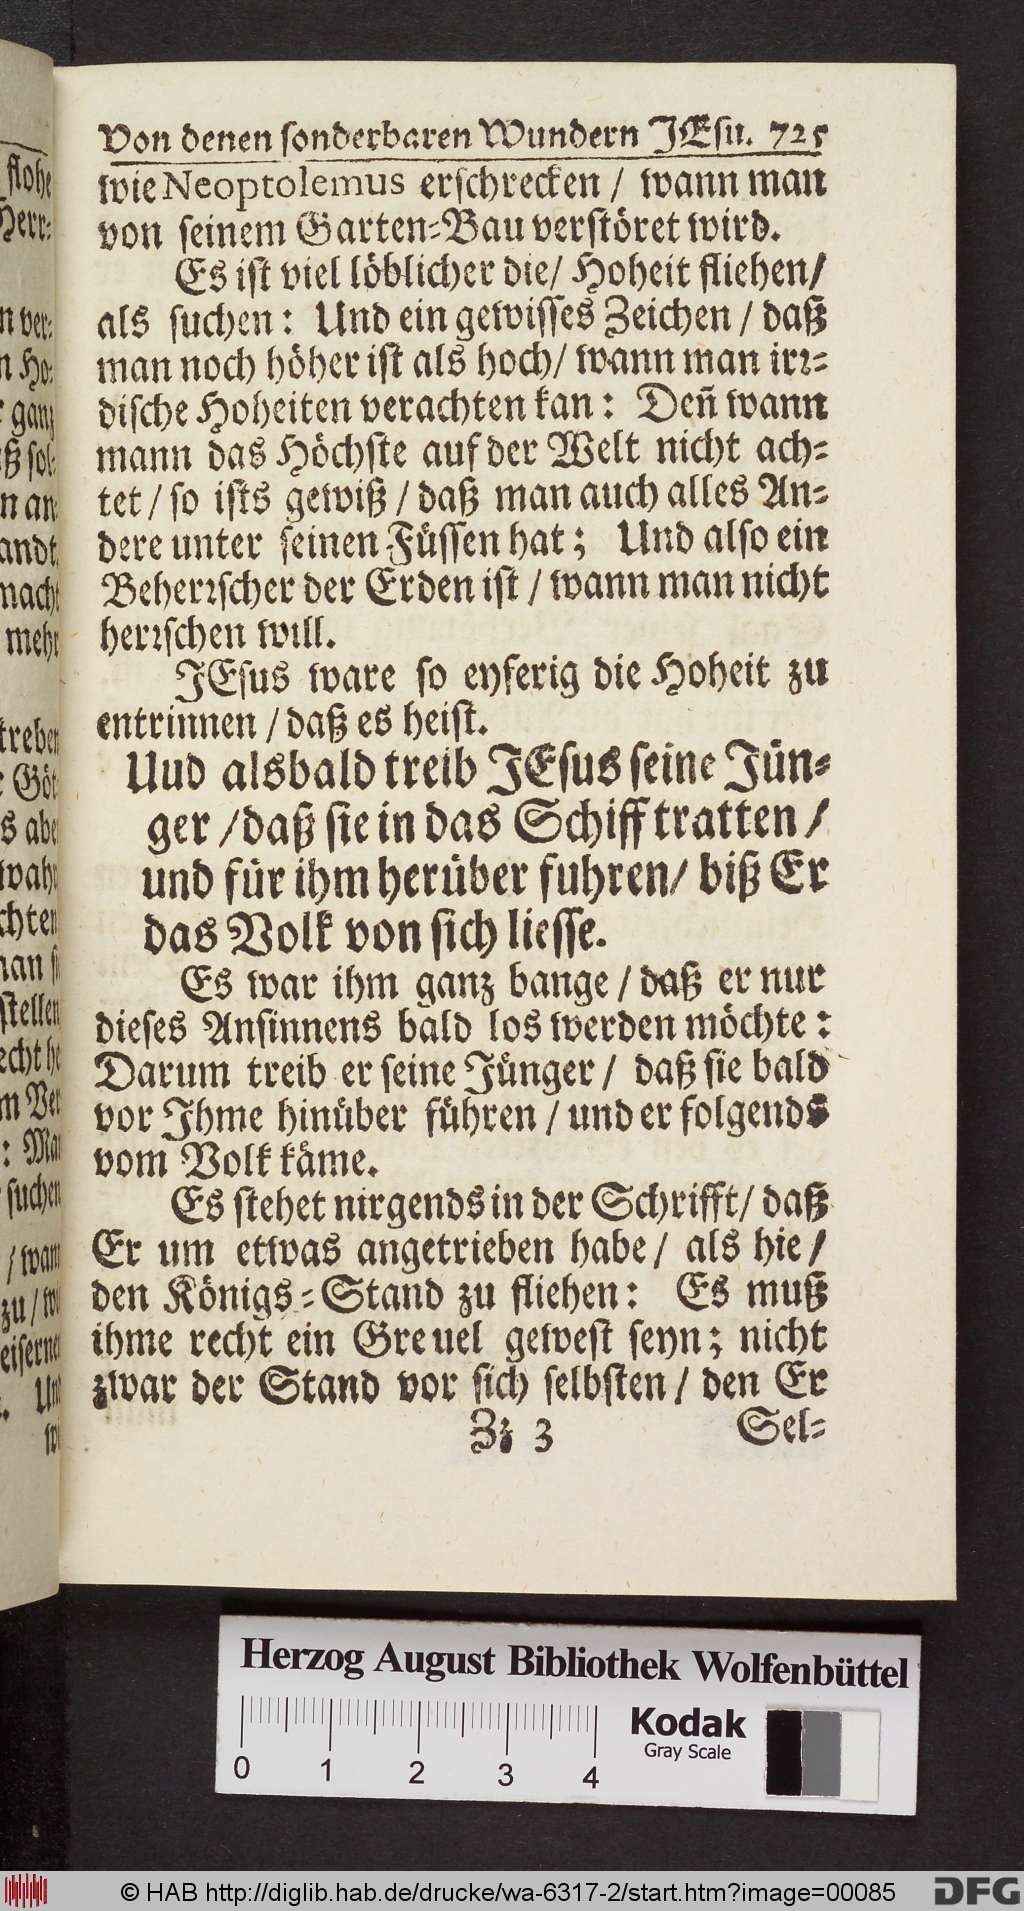 Von denen sonderbaren Wundern JEsu. 725
wie Neoptolemus erschrecken / wann man
von seinem Garten-Bau verstöret wird.
Es ist viel löblicher die/ Hoheit fliehen/
als suchen: Und ein gewisses Zeichen / daß
man noch höher ist als hoch/ wann man irr-
dische Hoheiten verachten kan: Deñ wann
mann das Höchste auf der Welt nicht ach-
tet / so ists gewiß / daß man auch alles An-
dere unter seinen Füssen hat; Und also ein
Beherrscher der Erden ist / wann man nicht
herrschen will.
JEsus ware so eyferig die Hoheit zu
entrinnen / daß es heist.
Uud alsbald treib JEsus seine Jün-
ger / daß sie in das Schiff tratten /
und für ihm herüber fuhren/ biß Er
das Volk von sich liesse.
Es war ihm ganz bange / daß er nur
dieses Ansinnens bald los werden möchte:
Darum treib er seine Jünger / daß sie bald
vor Ihme hinüber führen / und er folgends
vom Volk käme.
Es stehet nirgends in der Schrifft/ daß
Er um etwas angetrieben habe / als hie /
den Königs-Stand zu fliehen: Es muß
ihme recht ein Greuel gewest seyn; nicht
zwar der Stand vor sich selbsten / den Er
Zz 3 Sel-
flohe
Herr-
n ver-
n Ho-
r ganz
aß sol-
n an-
andt.
macht
mehr
treben
r Göt-
s aber
wahr
chten
nan si
stellen
echt he
m Ver
: Man
suchen
/ wann
zu / wi
eiserner
. Und
wi
Herzog August Bibliothek Wolfenbüttel
0 1 2 3 4
Kodak
Gray Scale
© HAB http://diglib.hab.de/drucke/wa-6317-2/start.htm?image=00085
DFG